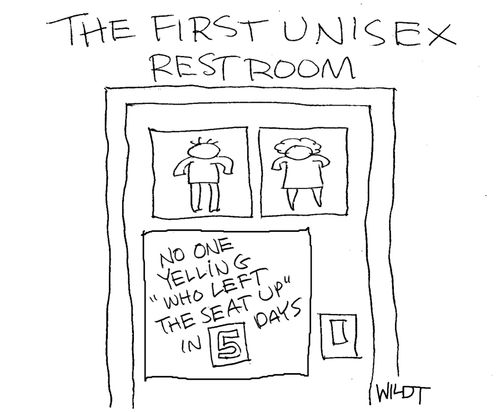 THE FIRST UNISEX
RESTROOM
NO ONE
YELLING
"WHO LEFT
THE SEAT UP"
IN 5 DAYS
WILDT